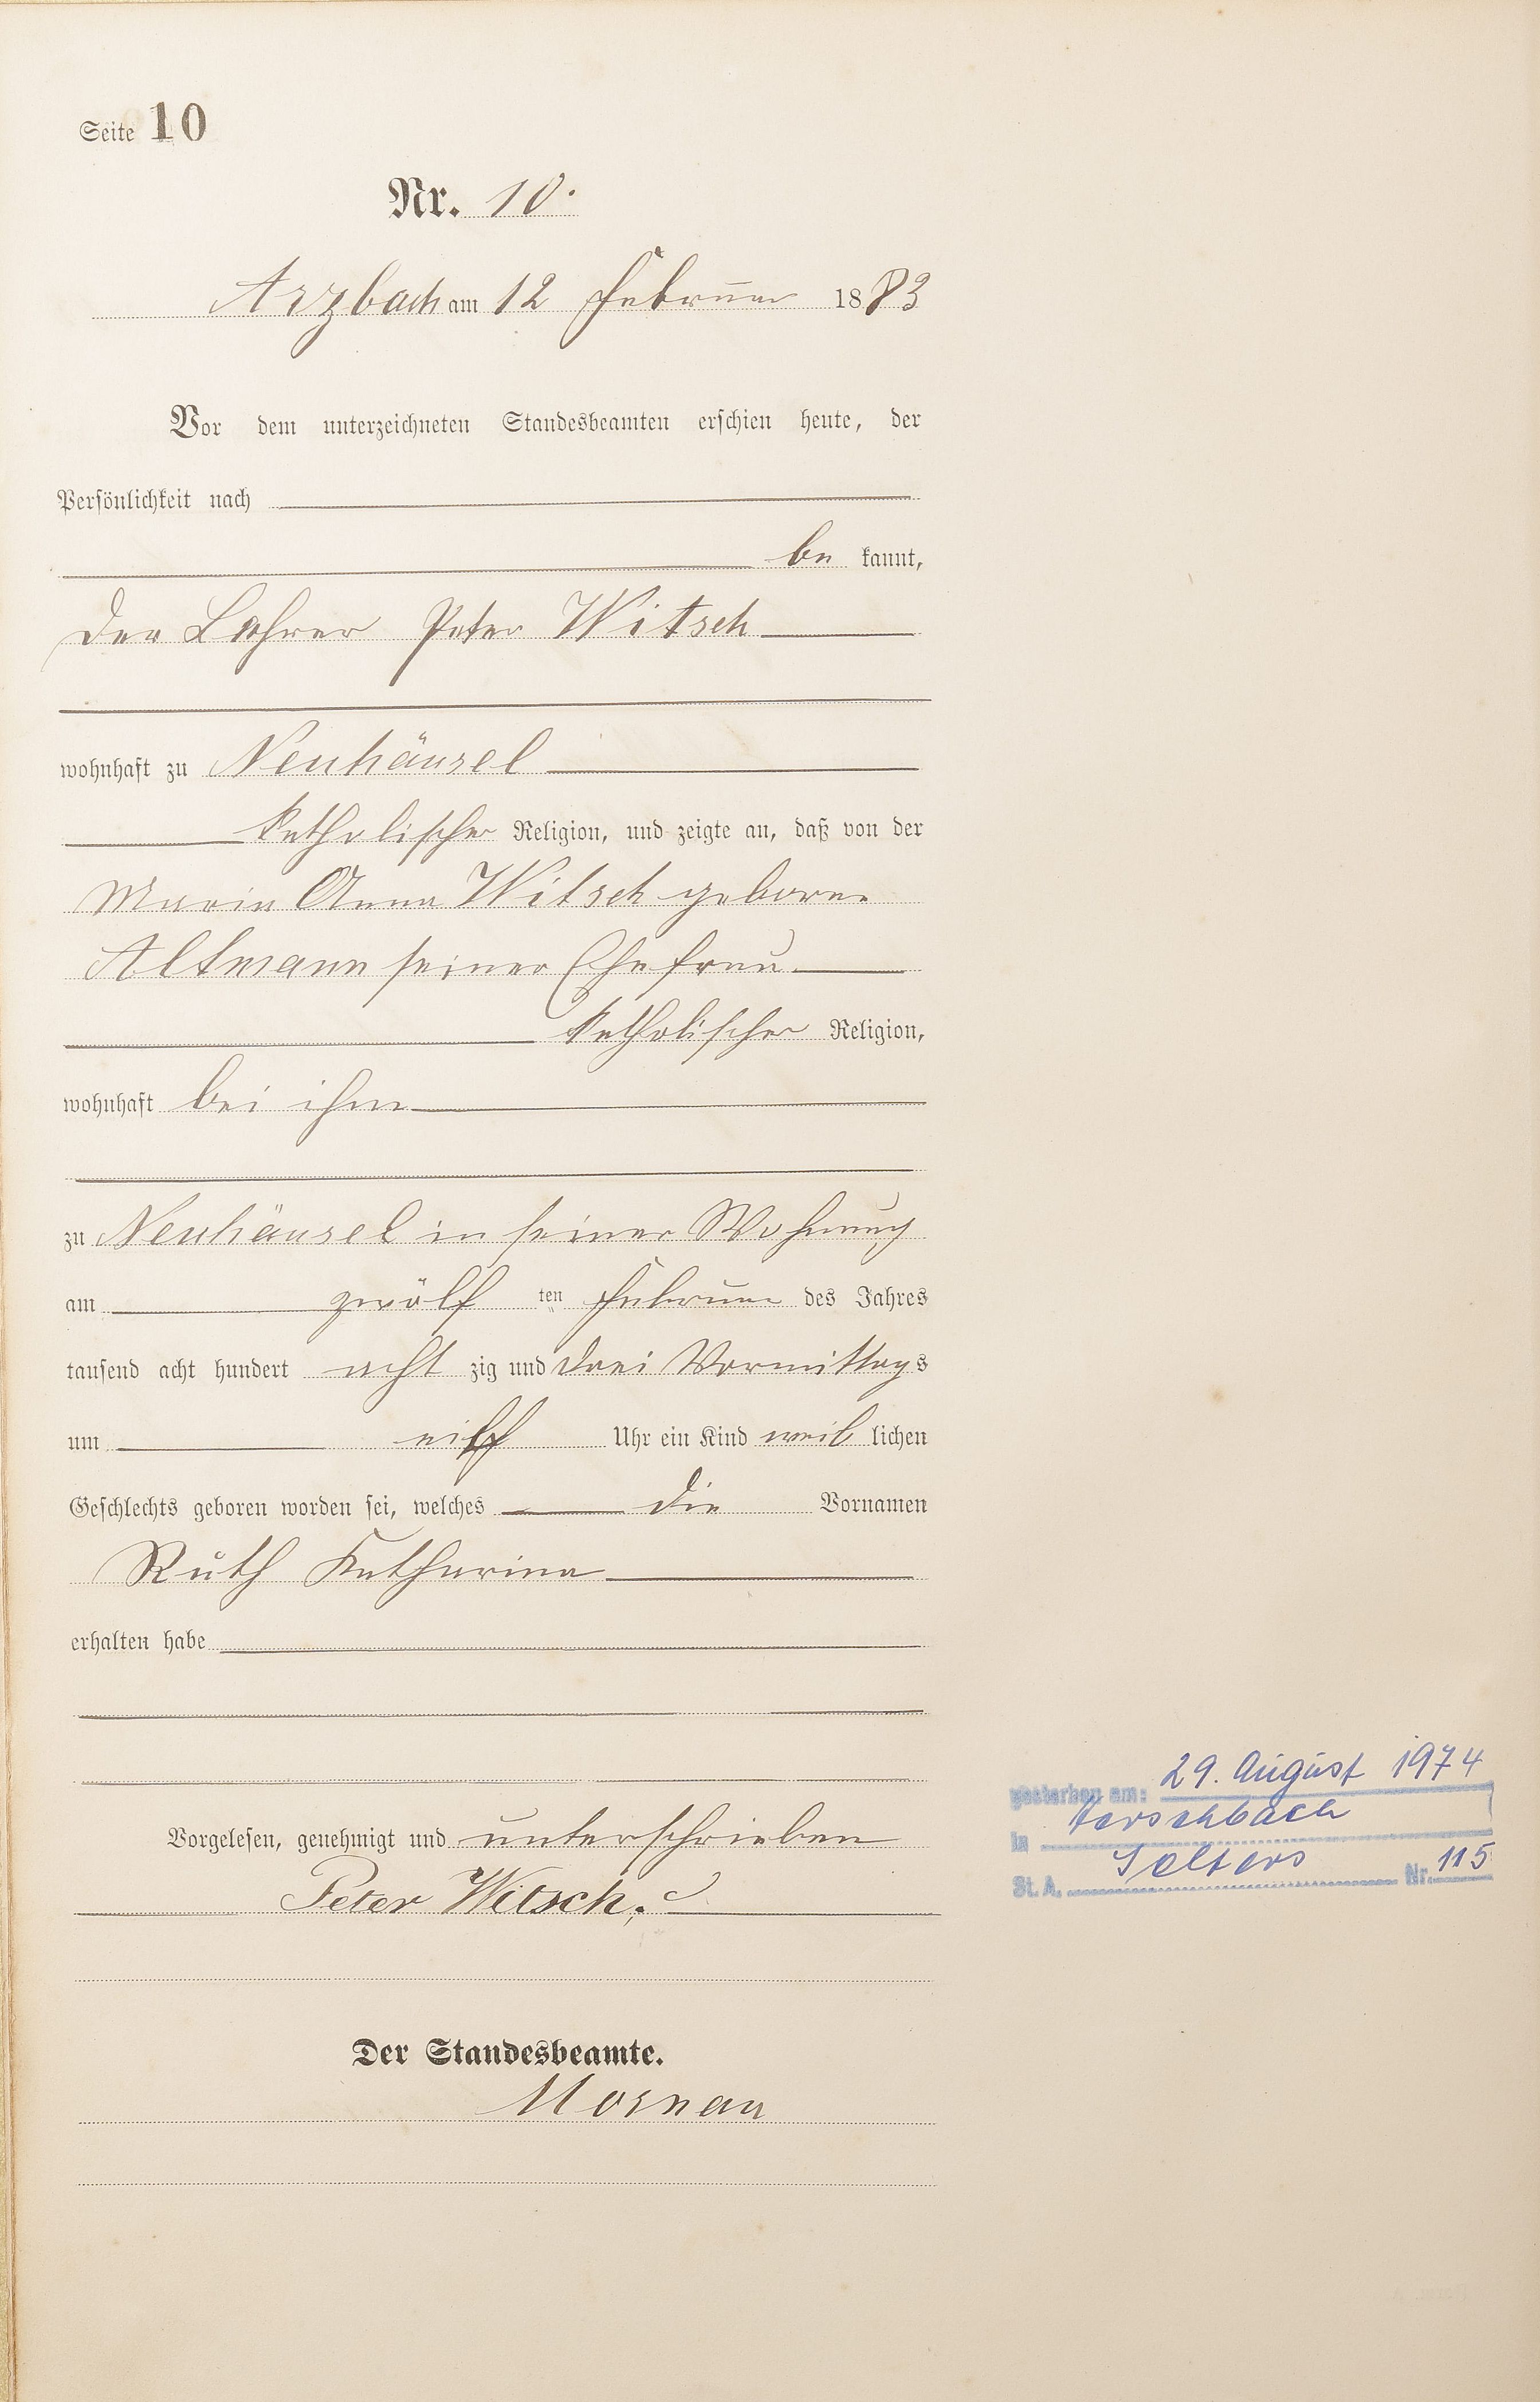 Seite 10
Nr. 10.
Arzbach am 12 Februar 1883
Vor dem unterzeichneten Standesbeamten erschien heute, der
Persönlichkeit nach
be kannt,
der Lehrer Peter Witsch
wohnhaft zu Neuhäusel
katholischer Religion, und zeigte an, daß von der
Maria Anna Witsch geborne
Altmann seiner Ehefrau
katholischer Religion,
wohnhaft bei ihm
zu Neuhäusel in seiner Wohnung
am zwölf ten Februar des Jahres
tausend acht hundert acht zig und drei Vormittags
um eilf Uhr ein Kind weib lichen
Geschlechts geboren worden sei, welches die Vornamen
Ruth Katharina
erhalten habe
Vorgelesen, genehmigt und unterschrieben
Peter Witsch.
Der Standesbeamte.
gestorben am: 29. August 1974
in Herschbach
St. A. Selters Nr. 115